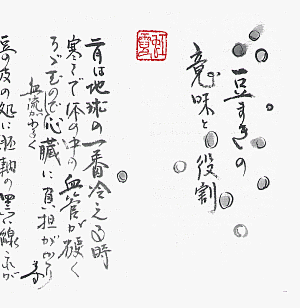 豆まきの
意味と役割
二月は地球の一番冷える時
寒さで体の中の血管が硬く
ちぢむので心臓に負担がかかり
血流がわるく
豆の皮の処に胚軸の黒い線